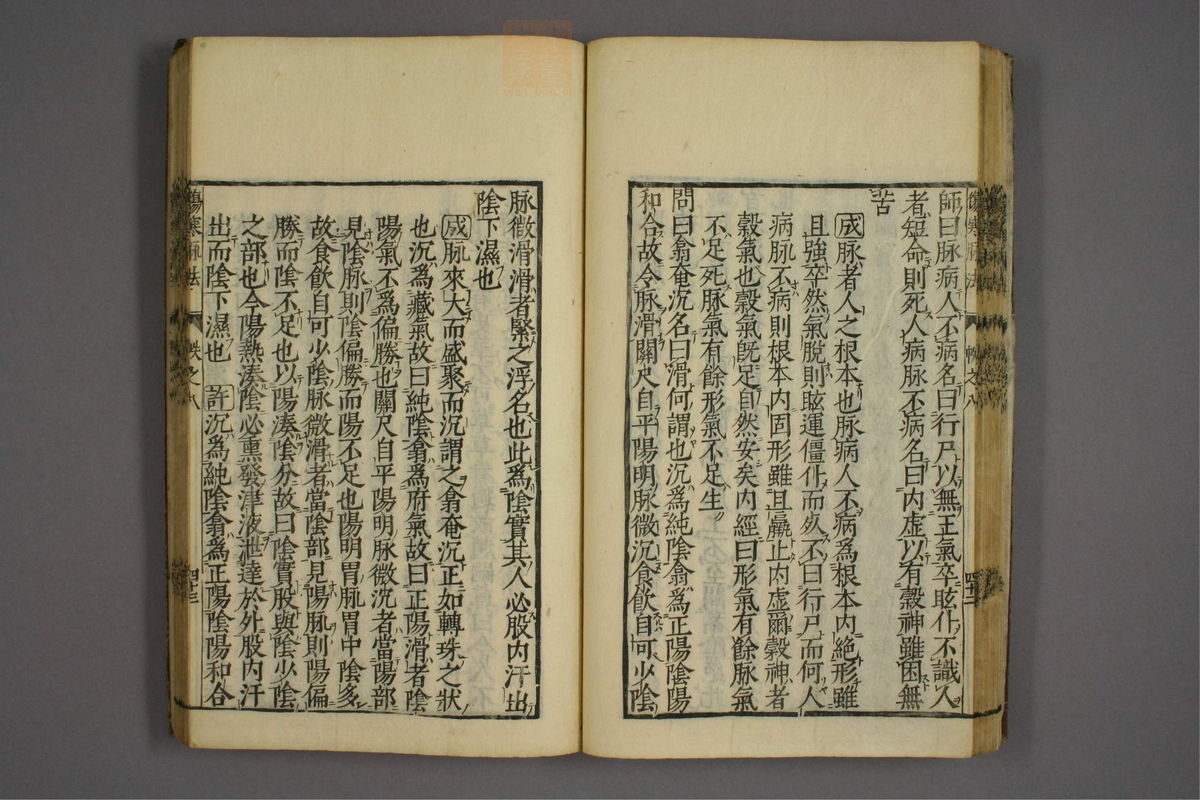 師曰脉病人不病名曰行尸以無王氣卒眩仆不識人
者短命則死人病脉不病名曰内虚以有穀神雖困無
苦
成脉者人之根本也脉病人不病爲根本内絶形雖
且強卒然氣脫則眩運僵仆而死不曰行尸而何人
病脉不病則根本内固形雖且羸止内虚爾穀神者
穀氣也穀氣旣足自然安矣内經曰形氣有餘脉氣
不足死脉氣有餘形氣不足生
問曰翕奄沉名曰滑何謂也沉爲純陰翕爲正陽陰陽
和合故令脉滑關尺自平陽明脉微沉食飲自可少陰
脉微滑滑者緊之浮名也此爲陰實其人必股内汗出
陰下濕也
成脉來大而盛聚而沉謂之翕奄沉正如轉珠之狀
也沉爲藏氣故曰純陰翕爲府氣故曰正陽滑者陰
陽氣不爲偏勝也關尺自平陽明脉微沉者當陽部
見陰脉則陰偏勝而陽不足也陽明胃脉胃中陰多
故食飲自可少陰脉微滑者當陰部見陽脉則陽偏
勝而陰不足也以陽湊陰分故曰陰實股與陰少陰
之部也今陽熱湊陰必熏發津液泄達於外股内汗
出而陰下濕也 許沉爲純陰翕爲正陽陰陽和合
傷寒脉法 帙之八 四十三